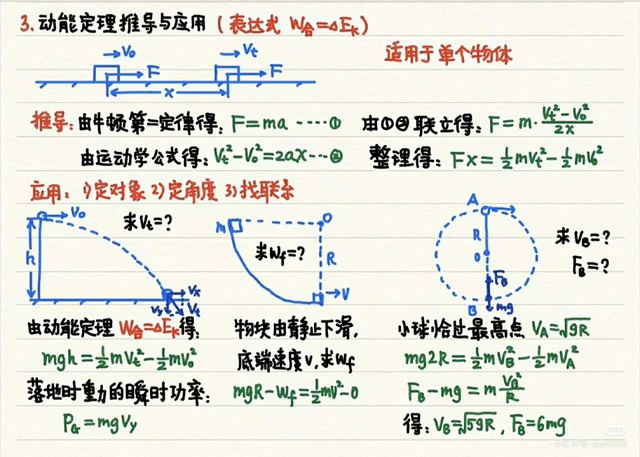 3.动能定理推导与应用(表达式 W合=ΔEk)
适用于单个物体
V₀
Vt
F
F
x
推导:由牛顿第一定律得:F=ma ----①
由①②联立得:F=m·(Vt²-V₀²)/2x
由运动学公式得:Vt²-V₀²=2ax---②
整理得:Fx=½mVt²-½mV₀²
应用:1)定对象 2)定角度 3)找联系
V₀
求Vt=?
h
Vx
Vy
Vt
m
O
求Wf=?
R
V
A
R
O
FB
B
mg
求VB=?
FB=?
由动能定理 W合=ΔEk得:
mgh=½mVt²-½mV₀²
落地时重力的瞬时功率:
PG=mgVy
物块由静止下滑,
底端速度v,求Wf
mgR-Wf=½mv²-0
小球恰过最高点 VA=√gR
mg2R=½mVB²-½mVA²
FB-mg=m VB²/R
得:VB=√5gR,FB=6mg